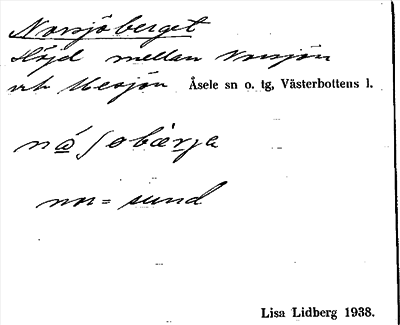 Norsjöberget
Höjd mellan Norsjön
och Mesjön Åsele sn o. tg, Västerbottens l.
nå̱ʃobærja
nor = sund
Lisa Lidberg 1938.